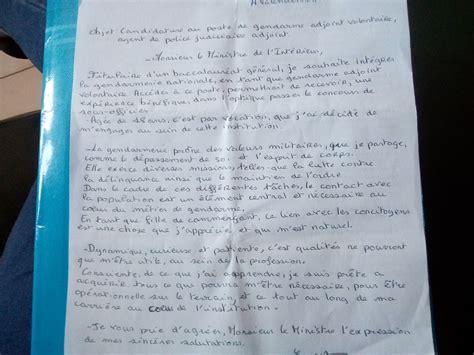 A Valenciennes
Objet Candidature au poste de gendarme adjoint volontaire,
agent de police judiciaire adjoint
-Monsieur le Ministre de l'Intérieur,
Titulaire d'un baccalauréat général, je souhaite intégrer
la gendarmerie nationale, en tant que gendarme adjoint
volontaire. Accéder à ce poste, permettrait de recevoir, une
expérience bénéfique, dans l'optique passer le concours de
sous-officier.
-Agée de 18 ans, c'est par vocation, que j'ai décidé de
m'engager au sein de cette institution.
-La gendarmerie prône des valeurs militaires, que je partage,
comme le dépassement de soi et l'esprit de corps.
Elle exerce diverses missions, telles que la lutte contre
la délinquance ainsi que le maintien de l'ordre
Dans le cadre de ces différentes tâches, le contact avec
la population est un élément central et nécessaire au
cœur du métier de gendarme.
En tant que fille de commerçant, ce lien avec les concitoyens
est une chose que j'apprécie et qui m'est naturel.
-Dynamique, curieuse et patiente, c'est qualités ne pouvront
que m'être utile, au sein de la profession.
Consciente, de ce que j'ai apprendre, je suis prête a
acquérir tous ce que pourra m'être nécessaire, pour être
opérationnelle sur le terrain, et ce tout au long de ma
carrière au cœur de l'institution.
-Je vous prie d'agréer, Monsieur le Ministre l'expression
de mes sincères salutations.